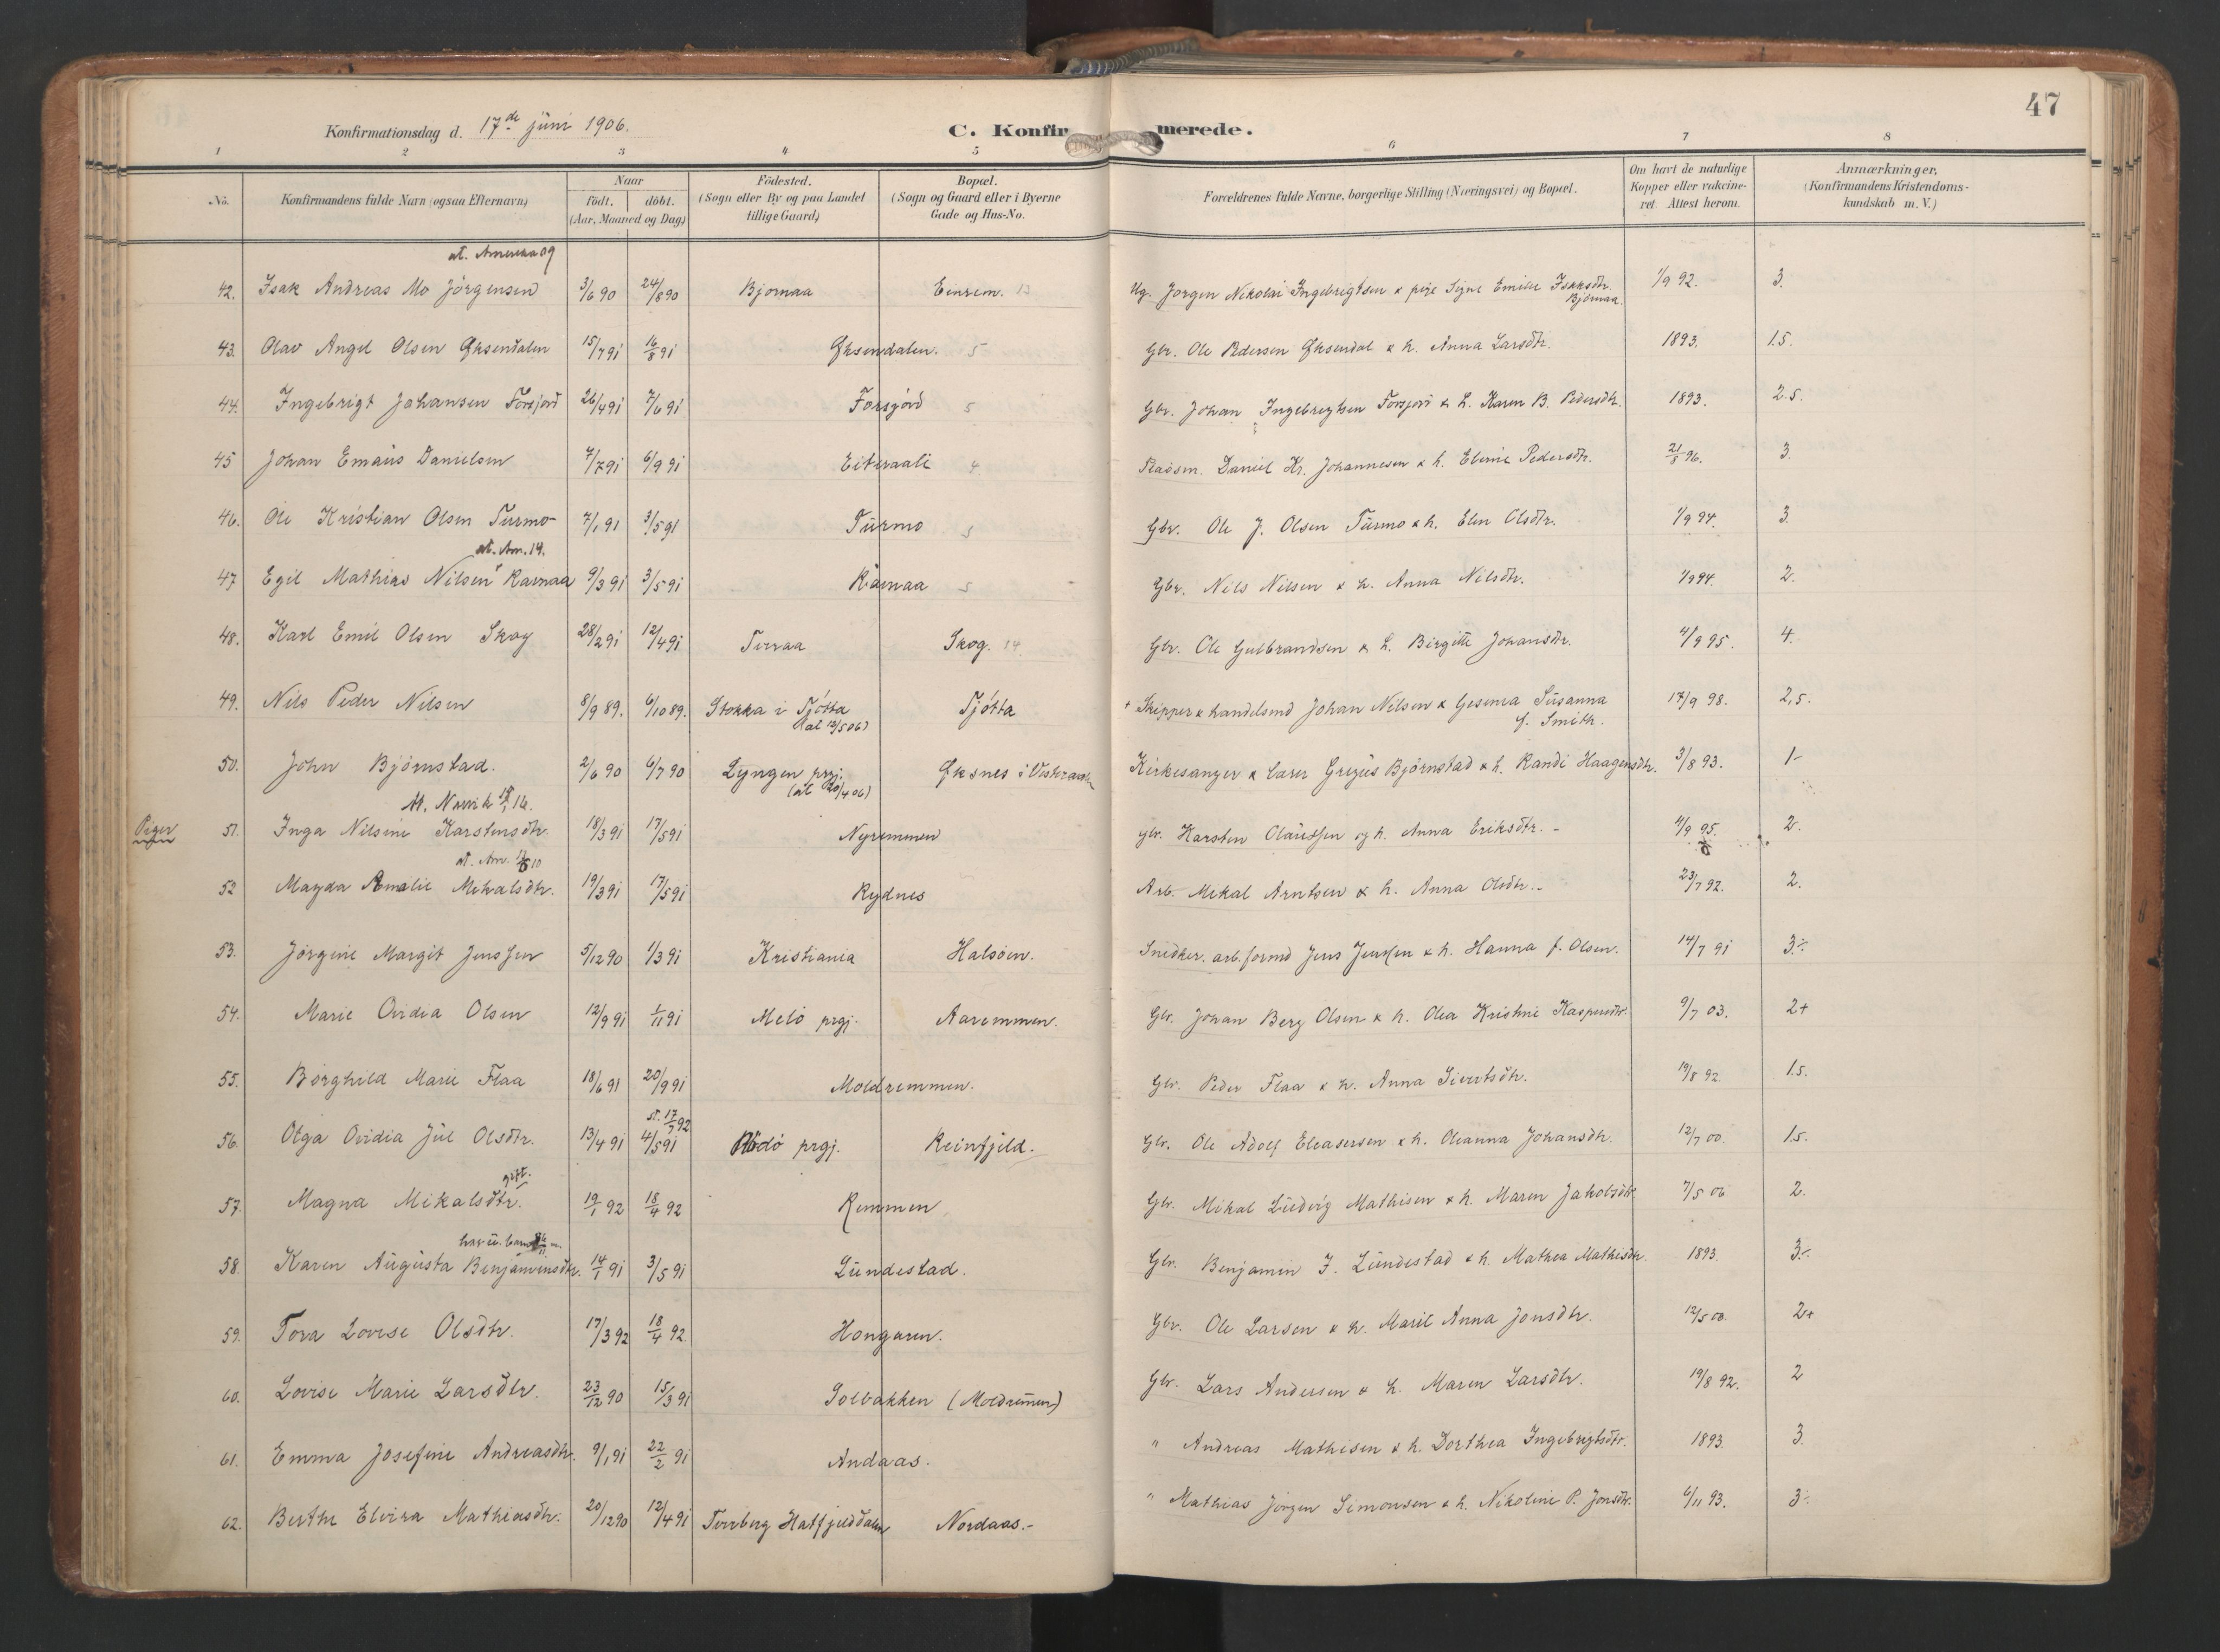 47
Konfirmationsdag d. 17de juni 1906.
C. Konfirmerede.
1 2 3 4 5 6 7 8
No.
Konfirmandens fulde Navn (ogsaa Efternavn)
Naar
födt. döbt.
(Aar, Maaned og Dag)
Födested.
(Sogn eller By og paa Landet
tillige Gaard)
Bopæl.
(Sogn og Gaard eller i Byerne
Gade og Hus-No.
Forældrenes fulde Navne, borgerlige Stilling (Næringsvei) og Bopæl.
Om havt de naturlige
Kopper eller vakcine-
ret. Attest herom.
Anmærkninger,
(Konfirmandens Kristendoms-
kundskab m. V.)
at. Amerika 09
42. Isak Andreas Mo Jörgensen 3/6 90 24/8 90 Bjornaa Einrem. 13 Ug. Jorgen Nikolai Ingebrigtsen & pige Signe Emilie Isaksdtr. 1/9 92. 3.
Bjornaa.
43. Olav Angel Olsen Øksendalen 15/7 91 16/8 91 Øksendalen. 5 Gbr. Ole Pedersen Øksendal & h. Anna Larsdtr. 1893. 1.5.
44. Ingebrigt Johansen Forsjord 26/4 91 7/6 91 Forsjord 5 Gbr. Johan Ingebrigtsen Forsjord & h. Karen B. Pedersdtr. 1893. 2.5.
45 Johan Emaus Danielsen 7/7 91 6/9 91 Eiteraali 4 Pladsm. Daniel Kr. Johannesen & h. Elerine Pedersdtr. 21/8 96. 3.
46. Ole Kristian Olsen Turmo 7/1 91 3/5 91 Turmo 5 Gbr. Ole J. Olsen Turmo & h. Elen Olsdtr. 1/9 94. 3.
at. Am. 14.
47 Egil Mathias Nilsen Ramaa 9/3 91 3/5 91 Ramaa 5 Gbr. Nils Nilsen & h. Anna Nilsdtr. 1/9 94. 2.
48. Karl Emil Olsen Skog 28/2 91 12/4 91 Terraa Skog. 14 Gbr. Ole Gulbrandsen & h. Birgitte Johansdtr. 4/9 95. 4.
49. Nils Peder Nilsen 8/9 89. 6/10 89. Stokka i Tjøtta Tjótta + Skipper & handelsmd Johan Nilsen & Gesina Susanna 17/9 98. 2,5.
(at 12/5 06) f. Smith.
50. John Björnstad. 2/6 90 6/7 90 Lyngen prgj. Øksnes i Vesteraalen Kirkesanger & lærer Gregus Björnstad & h. Randi Haagensdtr. 3/8 93. 1-
(at 20/4 06)
at. Narvik 16.
Piger
51. Inga Nilsine Karstensdtr. 18/3 91 17/5 91 Nyremmen Gbr. Karsten Claussen og h. Anna Eriksdtr. - 4/9 95. 2.
at. Am. 10
52 Magda Amalie Mikalsdtr. 19/3 91 17/5 91 Rydnes Arb. Mikal Arntsen & h. Anna Olsdtr. - 23/7 92. 2.
53. Jörgine Margit Jenssen 5/12 90 1/3 91 Kristiania Halsöen. Snedker. arb.formd Jens Jenssen & h. Hanna f. Olsen. 14/7 91 3÷
54. Marie Ovidia Olsen 12/9 91 1/11 91 Melö prgj. Aaremmen. Gbr. Johan Berg Olsen & h. Olea Kristine Kaspersdtr. 9/7 03. 2+
55. Borghild Marie Flaa 18/6 91 20/9 91 Moldremmen. Gbr. Peder Flaa & h. Anna Sivertsdtr. 19/8 92. 1.5.
st. 17/7 92
56. Olga Ovidia Jul Olsdtr. 13/4 91 4/5 91 Rödö prgj. Reinfjeld. Gbr. Ole Adolf Eleasersen & h. Oleanna Johansdtr. 12/7 00. 1.5.
gift.
57. Magna Mikalsdtr. 19/1 92 18/4 92 Remmen Gbr. Mikal Ludvig Mathisen & h. Maren Jakobsdtr. 7/5 06 2.
har u. barn
58. Karen Augusta Benjaminsdtr. 14/1 91 3/5 91 Lundestad. Gbr. Benjamin J. Lundestad & h. Mathea Mathisdtr. 1893. 3÷
59. Tora Lovise Olsdtr. 17/3 92 18/4 92 Hongaren. Gbr. Ole Larsen & h. Marie Anna Jonsdtr. 12/5 00. 2+
60. Lovise Marie Larsdtr. 23/12 90 15/3 91 Solbakken (Moldremen) Gbr. Lars Andersen & h. Maren Larsdtr. 19/8 92. 2
61. Emma Josefine Andreasdtr. 9/1 91 22/2 91 Andaas. " Andreas Mathisen & h. Dorthea Ingebrigtsdtr. 1893. 3.
62. Berthe Elvira Mathiasdtr. 20/12 90 12/4 91 Tverberg Hatfjelddalen Nordaas. - " Mathias Jörgen Simonsen & h. Nikoline P. Jonsdtr. 6/11 93. 3÷